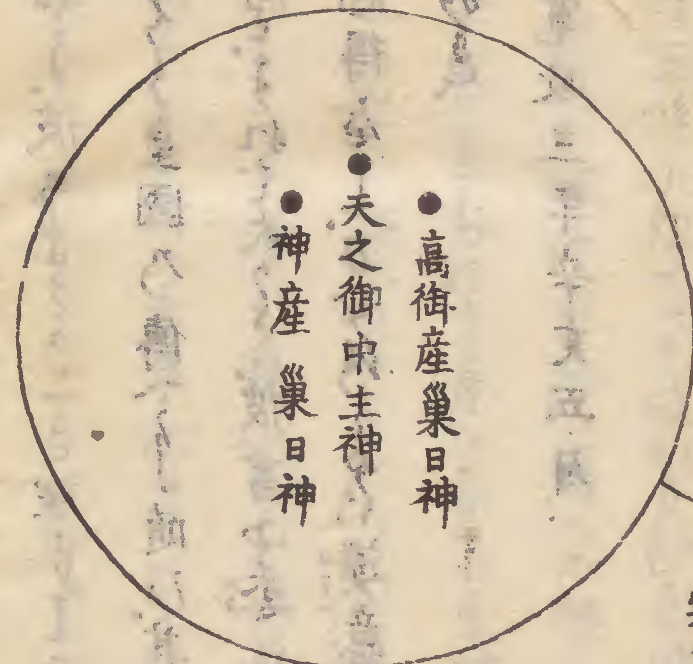 ●高御産巣日神
●天之御中主神
●神産巣日神